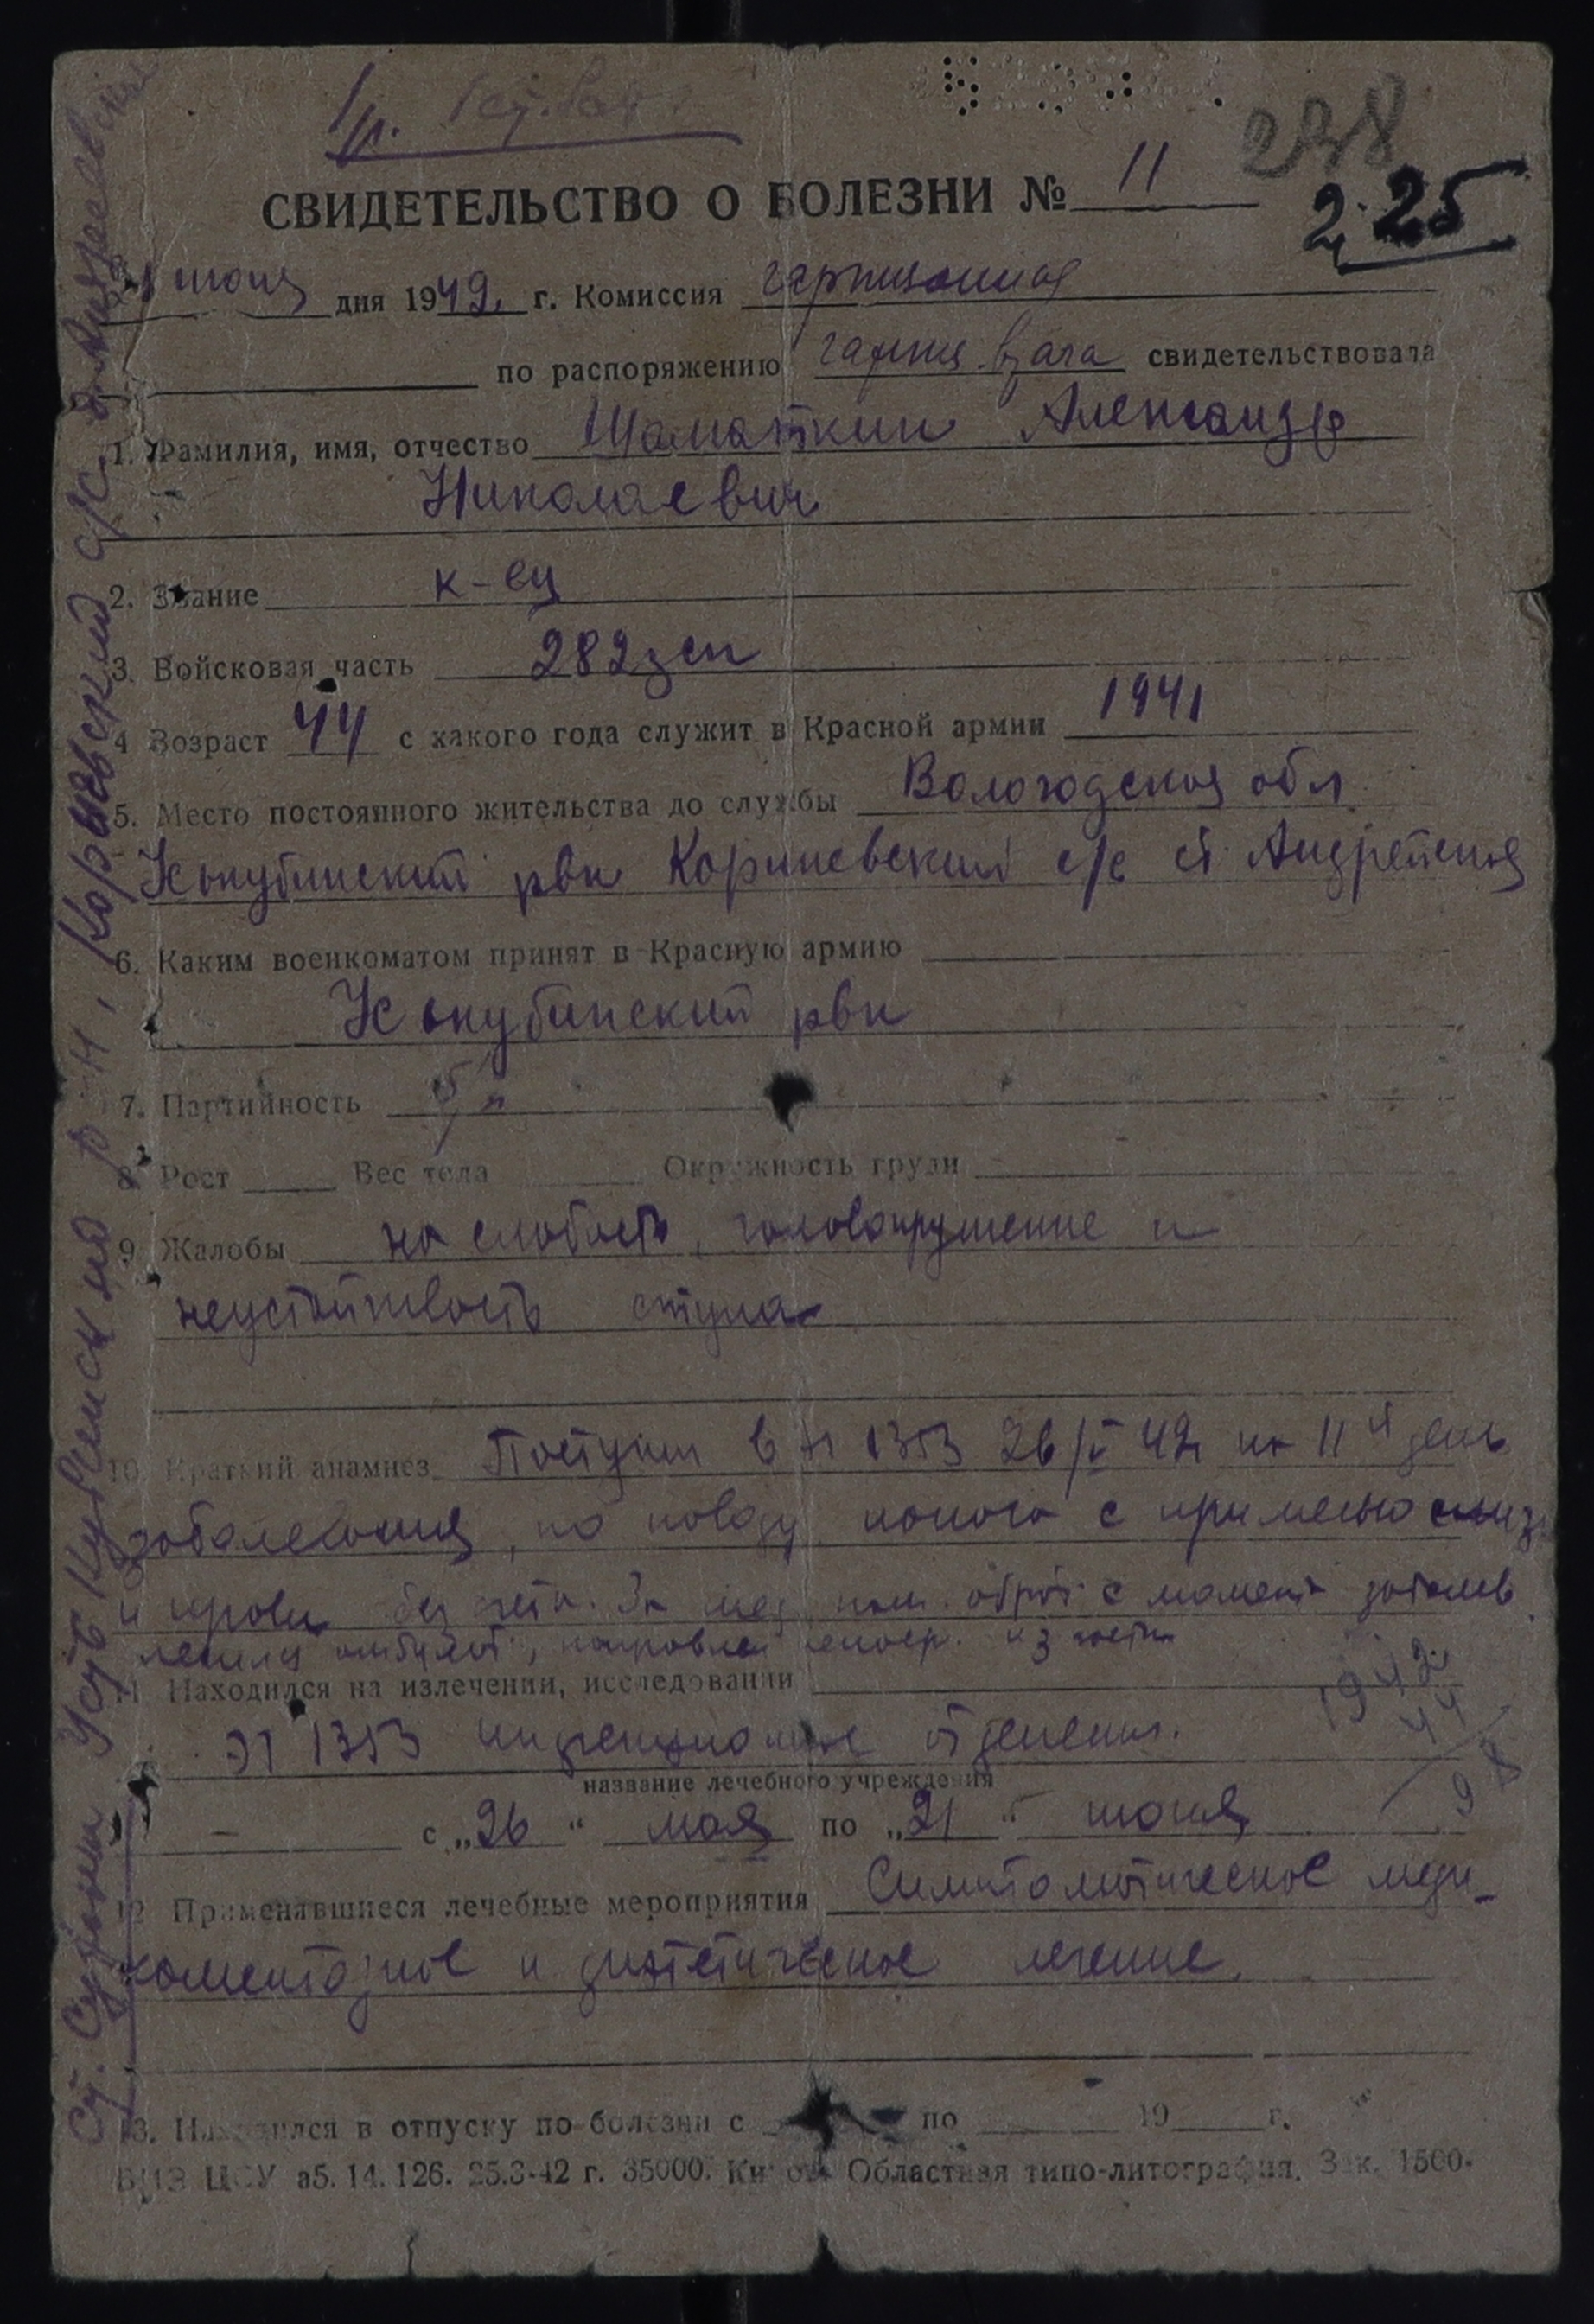 238
СВИДЕТЕЛЬСТВО О БОЛЕЗНИ № 11
2.25
июня дня 1942 г. Комиссия гарнизонная
по распоряжению гарниз. врача свидетельствовала
1. Фамилия, имя, отчество Шаматкин Александр
Николаевич
2. Звание к-ец
3. Войсковая часть 282 зсп
4 Возраст 44 с какого года служит в Красной армии 1941
5. Место постоянного жительства до службы Вологодская обл
рвк Кориневский с/с
6. Каким военкоматом принят в Красную армию
рвк
7. Партийность б/п
8. Рост Вес тела Окружность груди
9. Жалобы на слабость, головокружение и
неустойчивость стула
10. Краткий анамнез Поступил в ЭГ 1353 26/V 42 на 11й день
заболевания, по поводу поноса с примесью слизи
и крови
11. Находился на излечении, исследовании
ЭГ 1353 инфекционное отделение.
название лечебного учреждения
с „26“ мая по „21“ июня
12. Применявшиеся лечебные мероприятия Симптоматическое меди-
каментозное и диэтетическое лечение.
13. Находился в отпуску по болезни с по 19 г.
ЦСУ а5. 14. 126. 25.3-42 г. 35000. Областная типо-литография. Зак. 1500.
Ст. Сухона Усть Кубинский р-н, Кориневский с/с
1942
44
98